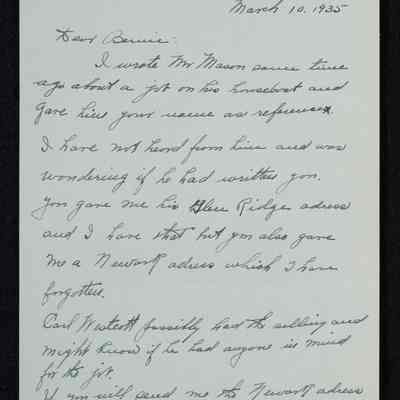 March 10. 1935
Dear Bernie:
I wrote Mr Mason some time
ago about a job on his houseboat and
gave him your name as reference.
I have not heard from him and was
wondering if he had written you.
You gave me his Glen Ridge adress
and I have that but you also gave
me a Newark adress which I have
forgotten.
Carl Westcott possibly has the selling and
might know if he had anyone in mind
for the job.
If you will send me the Newark adress